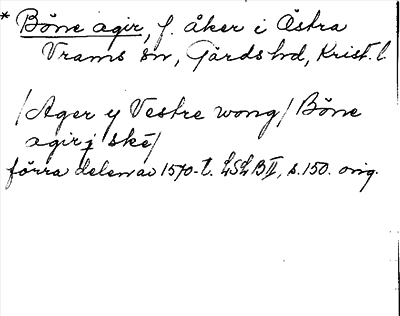 * Böne agir, f. åker i Östra
Vrams sn, Gärds hd, Krist. l.
/Ager y Vestre wong/ Böne
agir j ske/
förra delen av 1570-t. LSLB II, s. 150. orig.